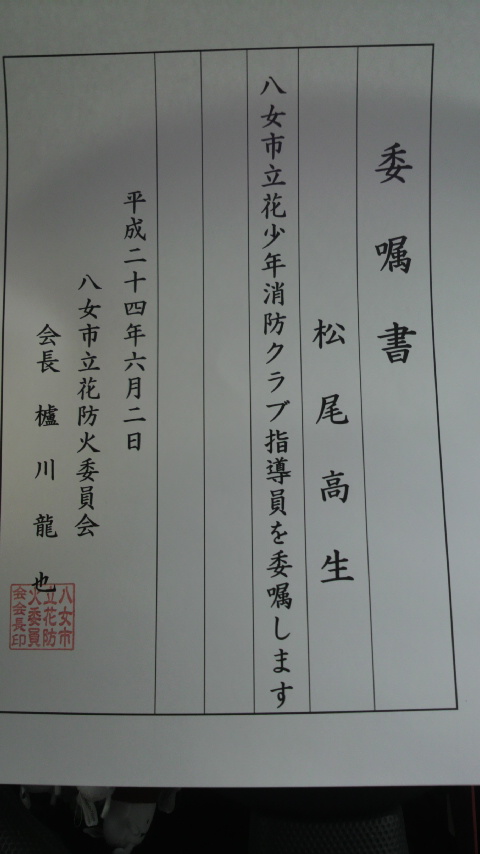 委嘱書
松尾高生
八女市立花少年消防クラブ指導員を委嘱します
平成二十四年六月二日
八女市立花防火委員会
会長 櫨川龍也
八女市
立花防
火委員
会会長印